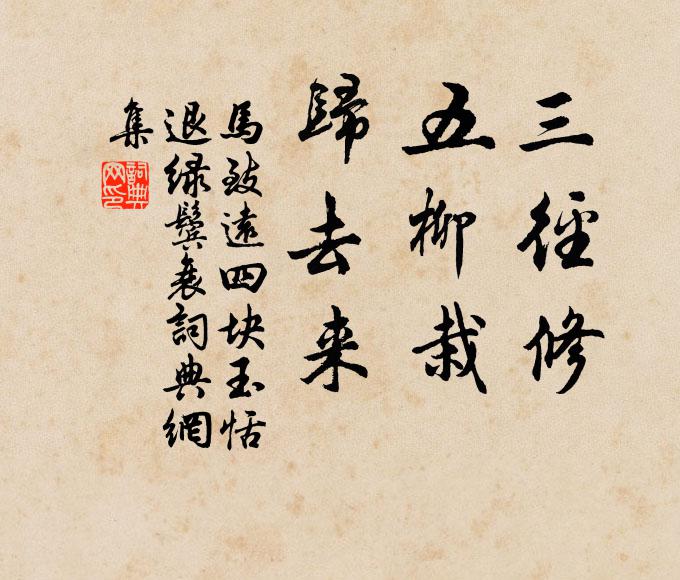 三徑修
五柳栽
歸去来
馬致遠四块玉恬
退绿鬓衰詞典網
集
詞典网印